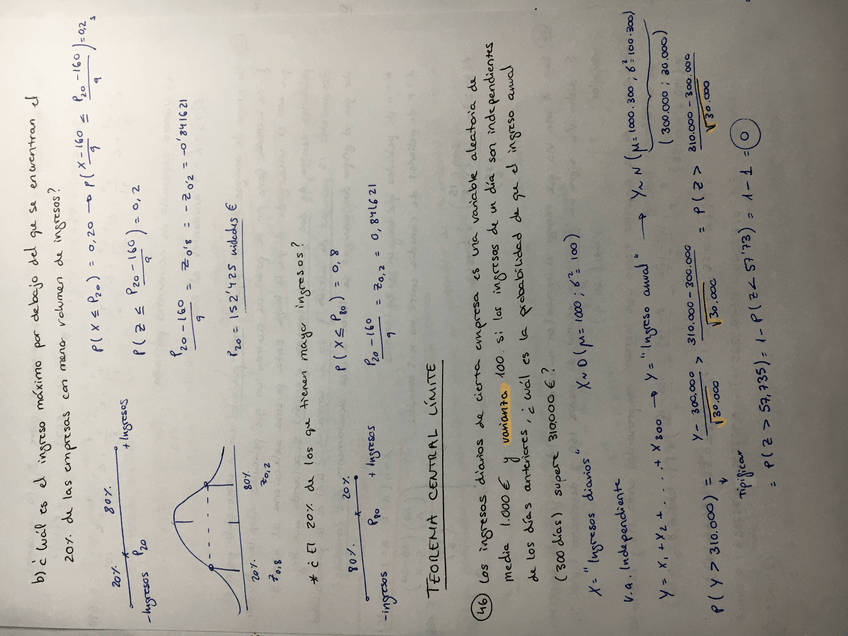 b) ¿ Cuál es el ingreso máximo por debajo del que se encuentran el
20% de las empresas con menor volumen de ingresos?
20% 80%
-Ingresos P20 + Ingresos
P(X ≤ P20) = 0,20 → P(X-160/9 ≤ P20-160/9) = 0,2
P(Z ≤ P20-160/9) = 0,2
P20-160/9 = Z0'8 = -Z0'2 = -0'841621
P20 = 152'425 unidades €
20% 80%
Z0,8 Z0,2
* ¿ El 20% de los que tienen mayor ingresos?
80% 20%
-ingresos P80 + Ingresos
P(X ≤ P80) = 0,8
P20-160/9 = Z0,2 = 0,841621
TEOREMA CENTRAL LÍMITE
46 Los ingresos diarios de cierta empresa es una variable aleatoria de
media 1.000€ y varianza 100 si los ingresos de un día son independientes
de los días anteriores, ¿ cuál es la probabilidad de que el ingreso anual
(300 días) supere 310.000€?
X = "Ingresos diarios" X ~ D(μ=1000; σ²=100)
v.a. Independiente
Y = X1 + X2 + ..... + X300 → Y = "Ingreso anual" → Y ~ N(μ=1000·300; σ²=100·300)
(300.000; 30.000)
P(Y > 310.000) = Y-300,000/√30.000 > 310.000-300.000/√30.000 = P(Z > 310.000-300.000/√30.000)
↓
Tipificar
= P(Z > 57,735) = 1 - P(Z < 57'73) = 1 - 1 = 0